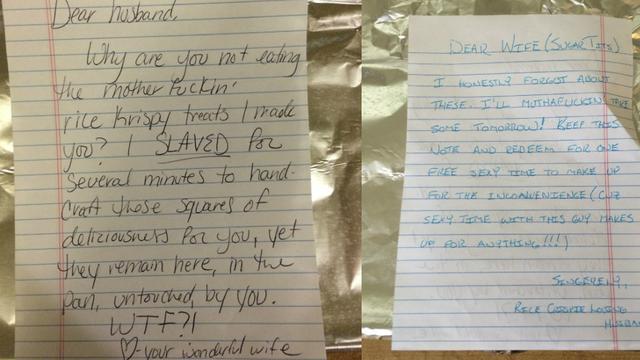 Dear husband,
Why are you not eating
the mother fuckin'
rice krispy treats I made
you? I SLAVED for
several minutes to hand-
craft these squares of
deliciousness for you, yet
they remain here, in the
pan, untouched, by you.
WTF?!
♡-your wonderful wife
DEAR WIFE (SUGAR TITS)
I HONESTLY FORGOT ABOUT
THESE. I'LL MUTHAFUCKIN TAKE
SOME TOMORROW! KEEP THIS
NOTE AND REDEEM FOR ONE
FREE SEXY TIME TO MAKE UP
FOR THE INCONVENIENCE (CUZ
SEXY TIME WITH THIS GUY MAKES
UP FOR ANYTHING!!!)
SINCERELY,
RICE COOKIE LOVING
HUSBAN